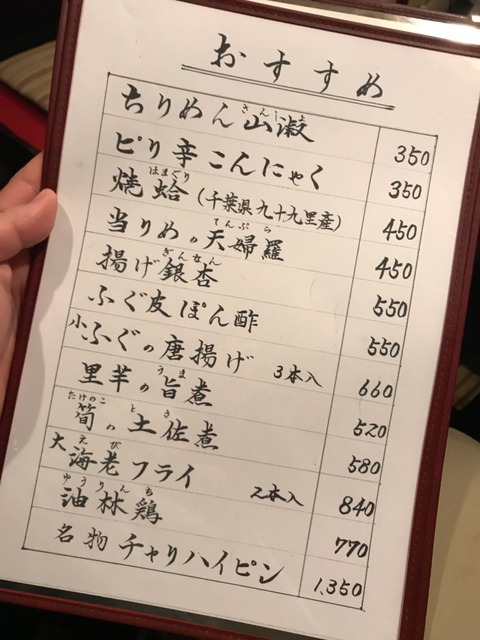 おすすめ
ちりめん山椒 350
ピリ辛こんにゃく 350
焼蛤(千葉県九十九里産) 450
当りめの天婦羅 450
揚げ銀杏 550
ふぐ皮ぽん酢 550
小ふぐの唐揚げ 3本入 660
里芋の旨煮 520
筍の土佐煮 580
大海老フライ 2本入 840
油林鶏 770
名物チャリハイピン 1,350